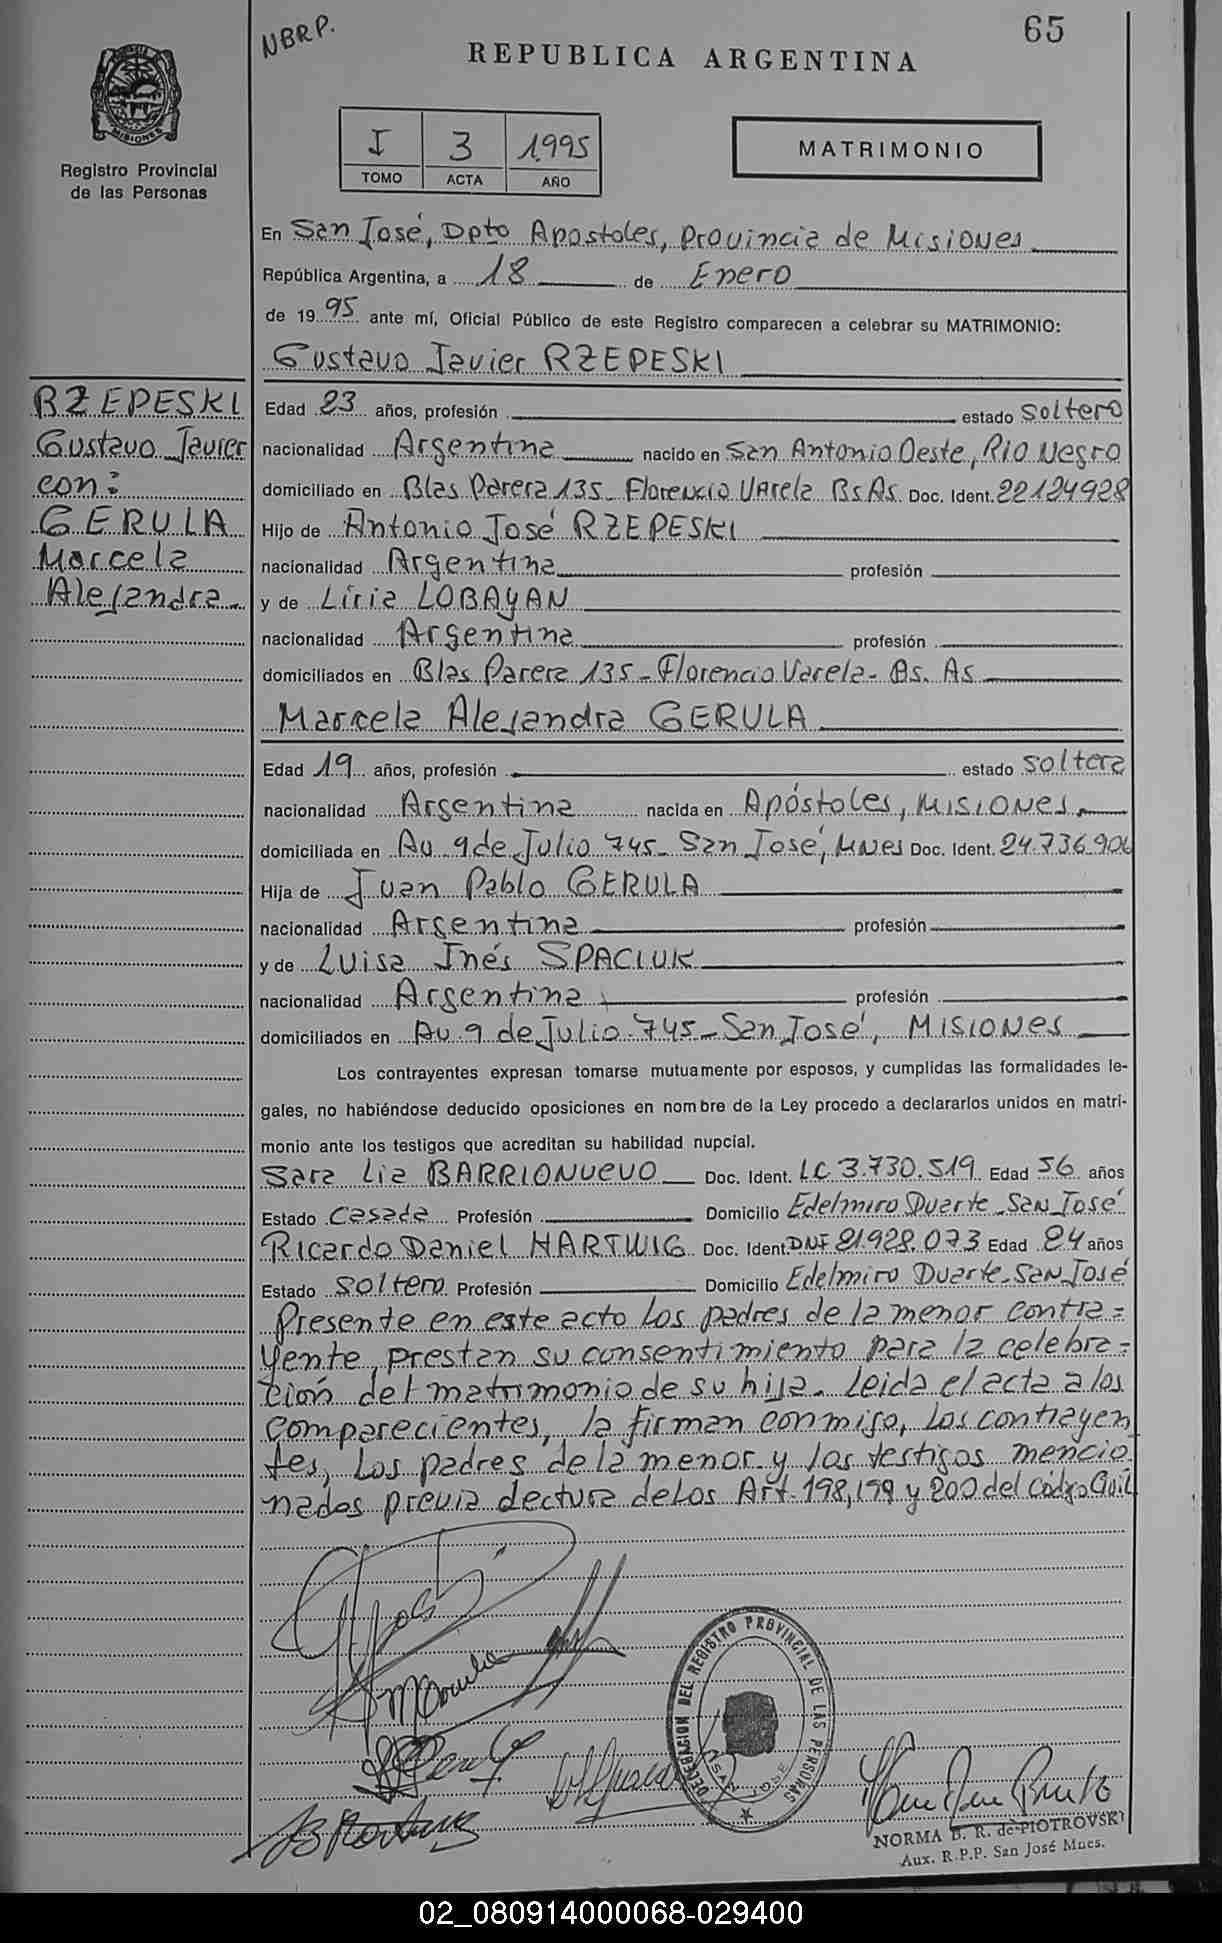 NBRP.
65
REPUBLICA ARGENTINA
MISIONES
Registro Provincial
de las Personas
I 3 1995
TOMO ACTA AÑO
MATRIMONIO
En San José, Dpto Apostoles, Provincia de Misiones
República Argentina, a 18 de Enero
de 1995 ante mí, Oficial Público de este Registro comparecen a celebrar su MATRIMONIO:
Gustavo Javier RZEPESKI
RZEPESKI
Gustavo Javier
con:
GERULA
Marcela
Alejandra
Edad 23 años, profesión estado soltero
nacionalidad Argentina nacido en San Antonio Oeste, Río Negro
domiciliado en Blas Parera 135- Florencio Varela Bs As Doc. Ident. 22124928
Hijo de Antonio José RZEPESKI
nacionalidad Argentina profesión
y de Liria LOBAYAN
nacionalidad Argentina profesión
domiciliados en Blas Parera 135- Florencio Varela- Bs. As
Marcela Alejandra GERULA
Edad 19 años, profesión estado soltera
nacionalidad Argentina nacida en Apóstoles, Misiones
domiciliada en Av. 9 de Julio 745- San José, Mnes Doc. Ident. 24.736.906
Hija de Juan Pablo GERULA
nacionalidad Argentina profesión
y de Luisa Inés SPACIUK
nacionalidad Argentina profesión
domiciliados en Av. 9 de Julio 745- San José, MISIONES
Los contrayentes expresan tomarse mutuamente por esposos, y cumplidas las formalidades le-
gales, no habiéndose deducido oposiciones en nombre de la Ley procedo a declararlos unidos en matri-
monio ante los testigos que acreditan su habilidad nupcial.
Sara Lia BARRIONUEVO Doc. Ident. LC 3.730.519 Edad 56 años
Estado Casada Profesión Domicilio Edelmiro Duarte- San José
Ricardo Daniel HARTWIG Doc. Ident. DNI 21.928.073 Edad 24 años
Estado soltero Profesión Domicilio Edelmiro Duarte- San José
Presente en este acto los padres de la menor contra=
yente, prestan su consentimiento para la celebra=
ción del matrimonio de su hija. Leida el acta a los
comparecientes, la firman conmigo, los contrayen
tes, los padres de la menor y los testigos mencio
nados previa lectura de los Art. 198, 199 y 200 del Código Civil
DELEGACION DEL REGISTRO PROVINCIAL DE LAS PERSONAS
SAN JOSE
NORMA B. R. de PIOTROVSKI
Aux. R.P.P. San José Mnes.
02_080914000068-029400